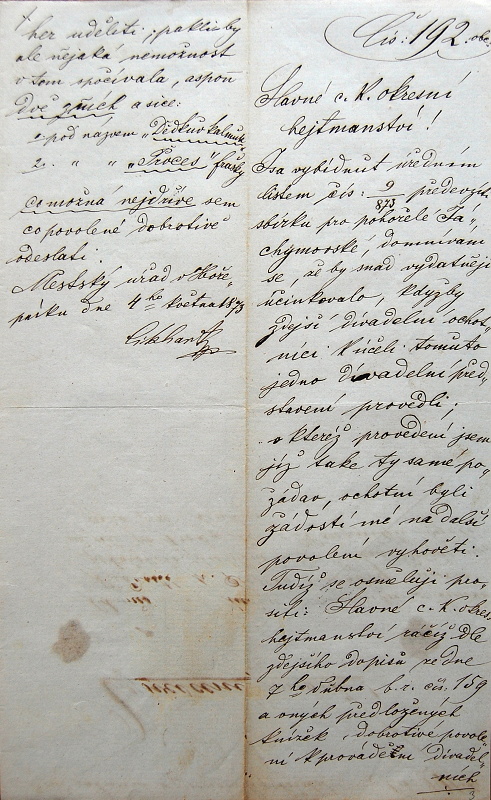 Čís: 192. obec.
Slavné c. k. okresní
hejtmanství!
Jsa vybídnut úředním
listem čís: 9/873 předevzíti
sbírku pro pohořelé Já„
chymovské domnívám
se, že by snad vydatněji
účinkovalo, kdyžby
zdejší divadelní ochot„
níci k účeli tomuto
jedno divadelní před„
stavení provedli;
o kteréž provedení jsem
již také ty samé po„
žádav, ochotni byli
žádosti mé na další
povolení vyhověti.
Tudíž se osměluji pro„
siti: Slavné c. k. okres.
hejtmanství ráčiž dle
zdejšího dopisů ze dne
7ho dubna b. r. čís. 159
a oných předložených
knížek, dobrotivé povole„
ní k provádění divadel„
ních
her uděliti; pakli by
ale nějaká nemožnost
v tom spočívala, aspoň
dvě z nich a sice:
1. pod názvem „Dědkův kalmuk"
2. " " „Proces" frašky
co možná nejdříve sem
co povolené dobrotivě
odeslati.
Městský úřad v Hoře„
pníku dne 4ho května 1873
Eckhardt